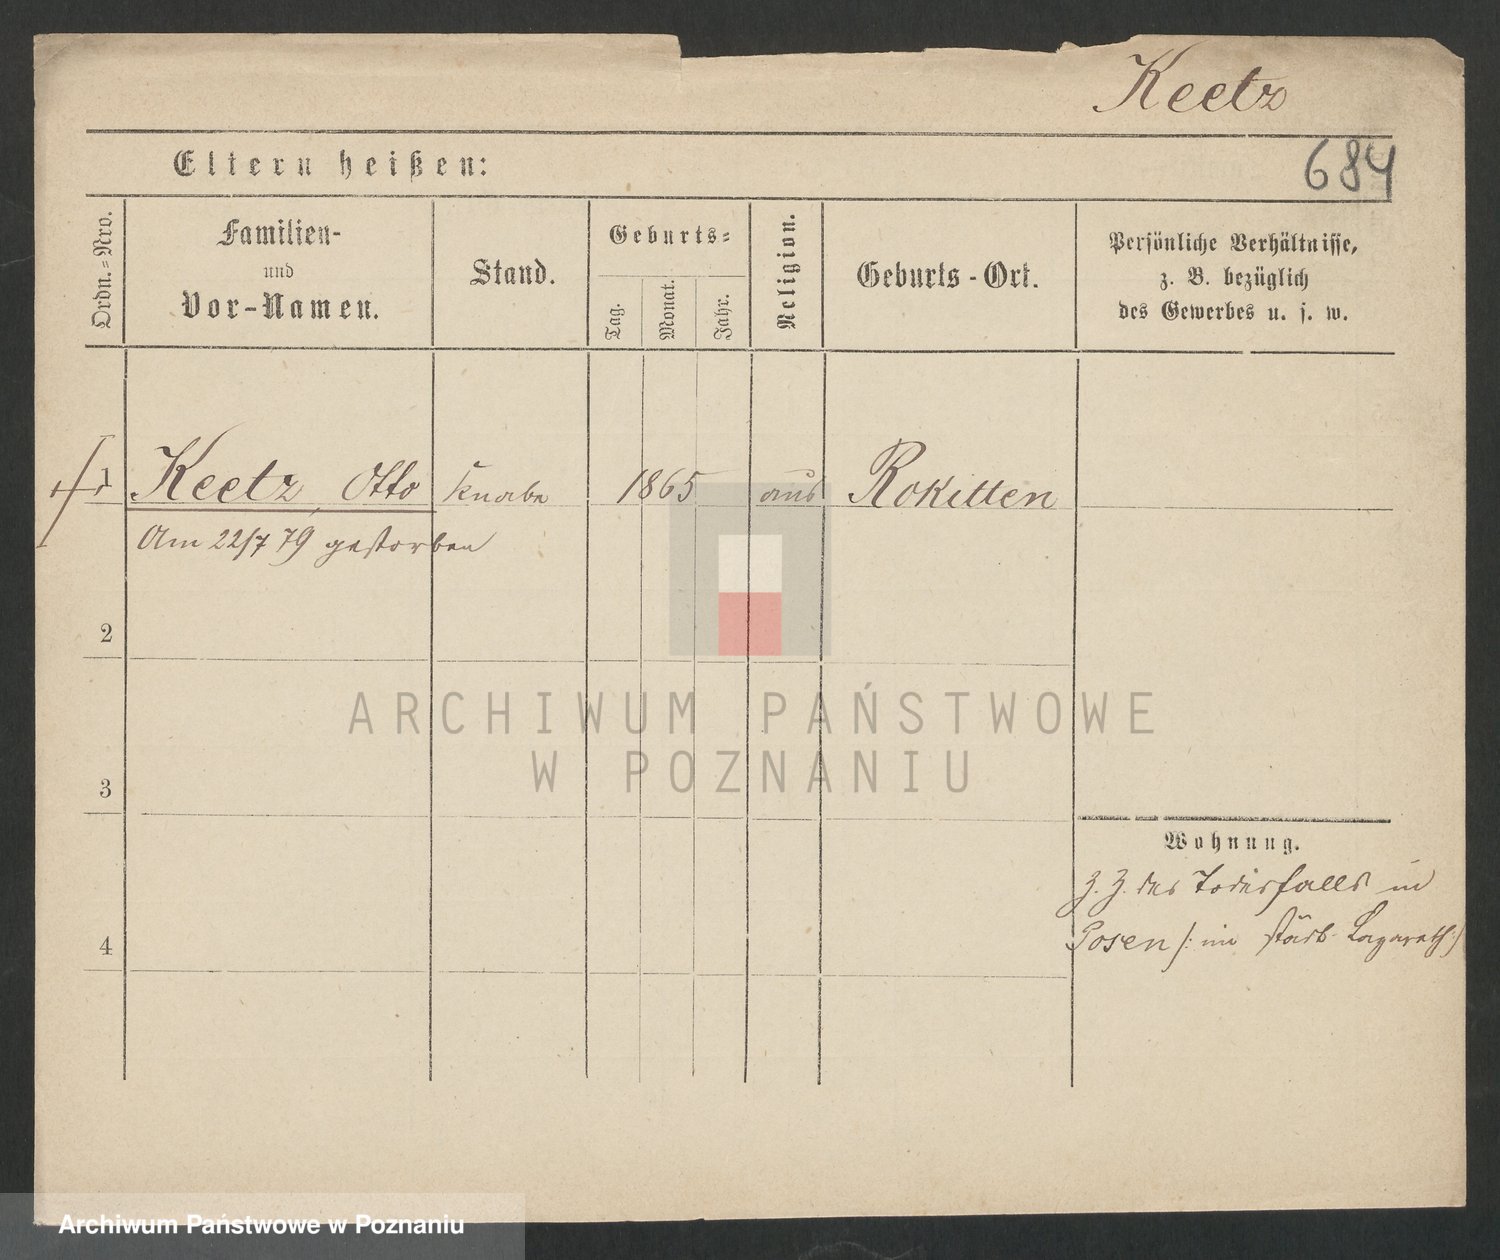 Keetz
Eltern heißen:
684
Ordn.-Nro.
Familien-
und
Vor-Namen.
Stand.
Geburts-
Tag.
Monat.
Jahr.
Religion.
Geburts-Ort.
Persönliche Verhältnisse,
z. B. bezüglich
des Gewerbes u. s. w.
1 Keetz, Otto Knabe 1865 aus Rokitten
Am 22/7 79 gestorben
2
3
4
Wohnung.
z. Z. des Todesfalls in
Posen /: im städt. Lazareth :/
ARCHIWUM PAŃSTWOWE
W POZNANIU
Archiwum Państwowe w Poznaniu